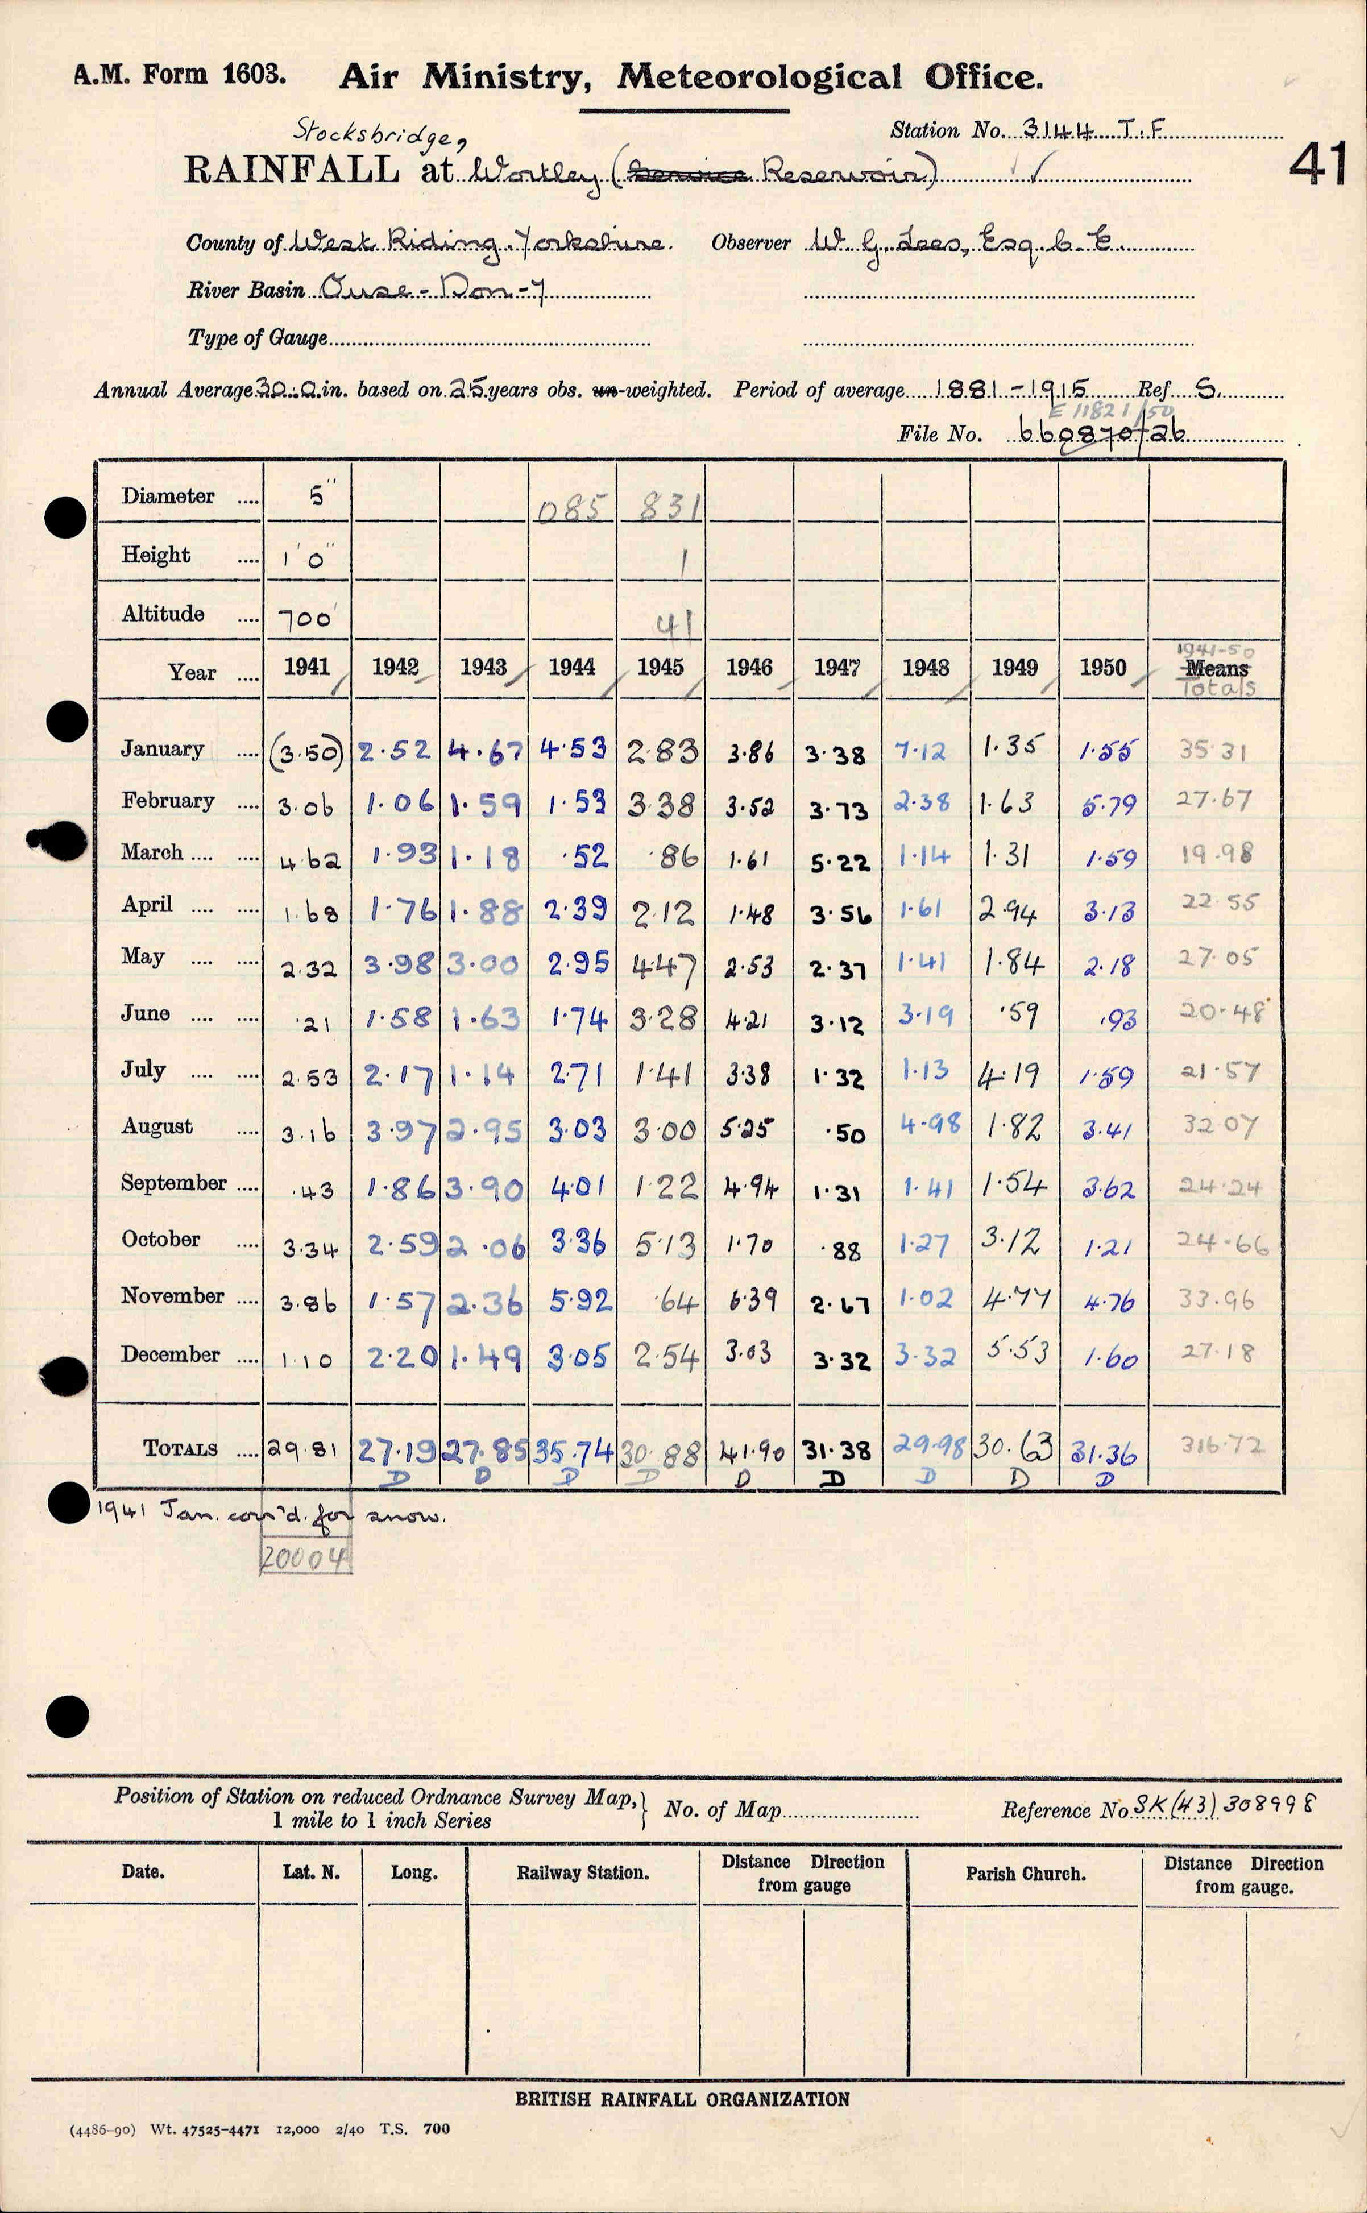 A.M. Form 1603. Air Ministry, Meteorological Office.
Stocksbridge, Station No. 3144 T.F
RAINFALL at Wortley (Service Reservoir) 41
County of West Riding. Yorkshire. Observer W. G. Lees, Esq. C.E.
River Basin Ouse - Don - 7
Type of Gauge
Annual Average 30.0 in. based on 25 years obs. un-weighted. Period of average 1881-1915 Ref S.
E 11821/50
File No. 660870/26
Diameter .... 5" 085 831
Height .... 1'0" 1
Altitude .... 700' 41
Year .... 1941 1942 1943 1944 1945 1946 1947 1948 1949 1950 1941-50 Means Totals
January .... (3.50) 2.52 4.67 4.53 2.83 3.86 3.38 7.12 1.35 1.55 35.31
February .... 3.06 1.06 1.59 1.53 3.38 3.52 3.73 2.38 1.63 5.79 27.67
March .... .... 4.62 1.93 1.18 .52 .86 1.61 5.22 1.14 1.31 1.59 19.98
April .... .... 1.68 1.76 1.88 2.39 2.12 1.48 3.56 1.61 2.94 3.13 22.55
May .... .... 2.32 3.98 3.00 2.95 4.47 2.53 2.37 1.41 1.84 2.18 27.05
June .... .... .21 1.58 1.63 1.74 3.28 4.21 3.12 3.19 .59 .93 20.48
July .... .... 2.53 2.17 1.14 2.71 1.41 3.38 1.32 1.13 4.19 1.59 21.57
August .... 3.16 3.97 2.95 3.03 3.00 5.25 .50 4.98 1.82 3.41 32.07
September .... .43 1.86 3.90 4.01 1.22 4.94 1.31 1.41 1.54 3.62 24.24
October .... 3.34 2.59 2.06 3.36 5.13 1.70 .88 1.27 3.12 1.21 24.66
November .... 3.86 1.57 2.36 5.92 .64 6.39 2.67 1.02 4.77 4.76 33.96
December .... 1.10 2.20 1.49 3.05 2.54 3.03 3.32 3.32 5.53 1.60 27.18
TOTALS .... 29.81 27.19 27.85 35.74 30.88 41.90 31.38 29.98 30.63 31.36 316.72
D D D D D D D D D
1941 Jan. corr'd. for snow.
20004
Position of Station on reduced Ordnance Survey Map, 1 mile to 1 inch Series } No. of Map Reference No SK(43) 308998
Date. Lat. N. Long. Railway Station. Distance Direction from gauge Parish Church. Distance Direction from gauge.
BRITISH RAINFALL ORGANIZATION
(4486-90) Wt. 47525-4471 12,000 2/40 T.S. 700